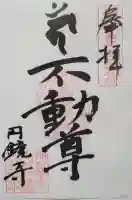 奉拝
不動尊
円鏡寺